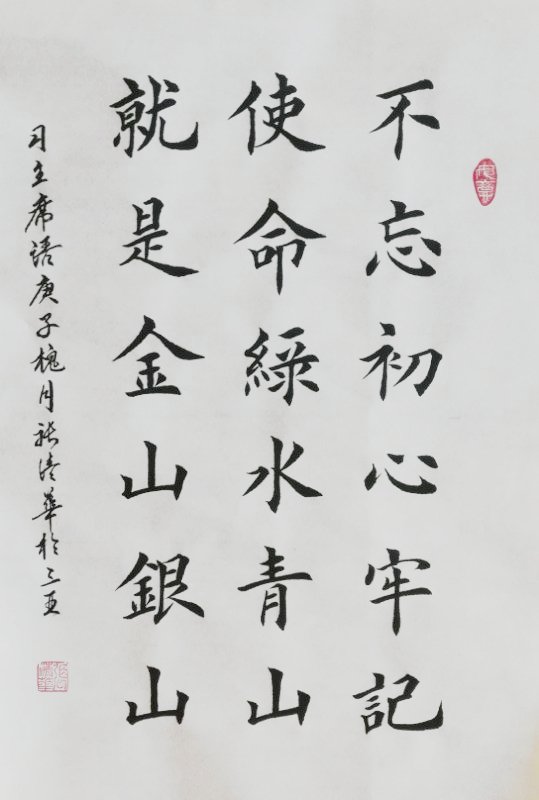 不忘初心牢記
使命綠水青山
就是金山銀山
习主席语庚子槐月张清華於三亚